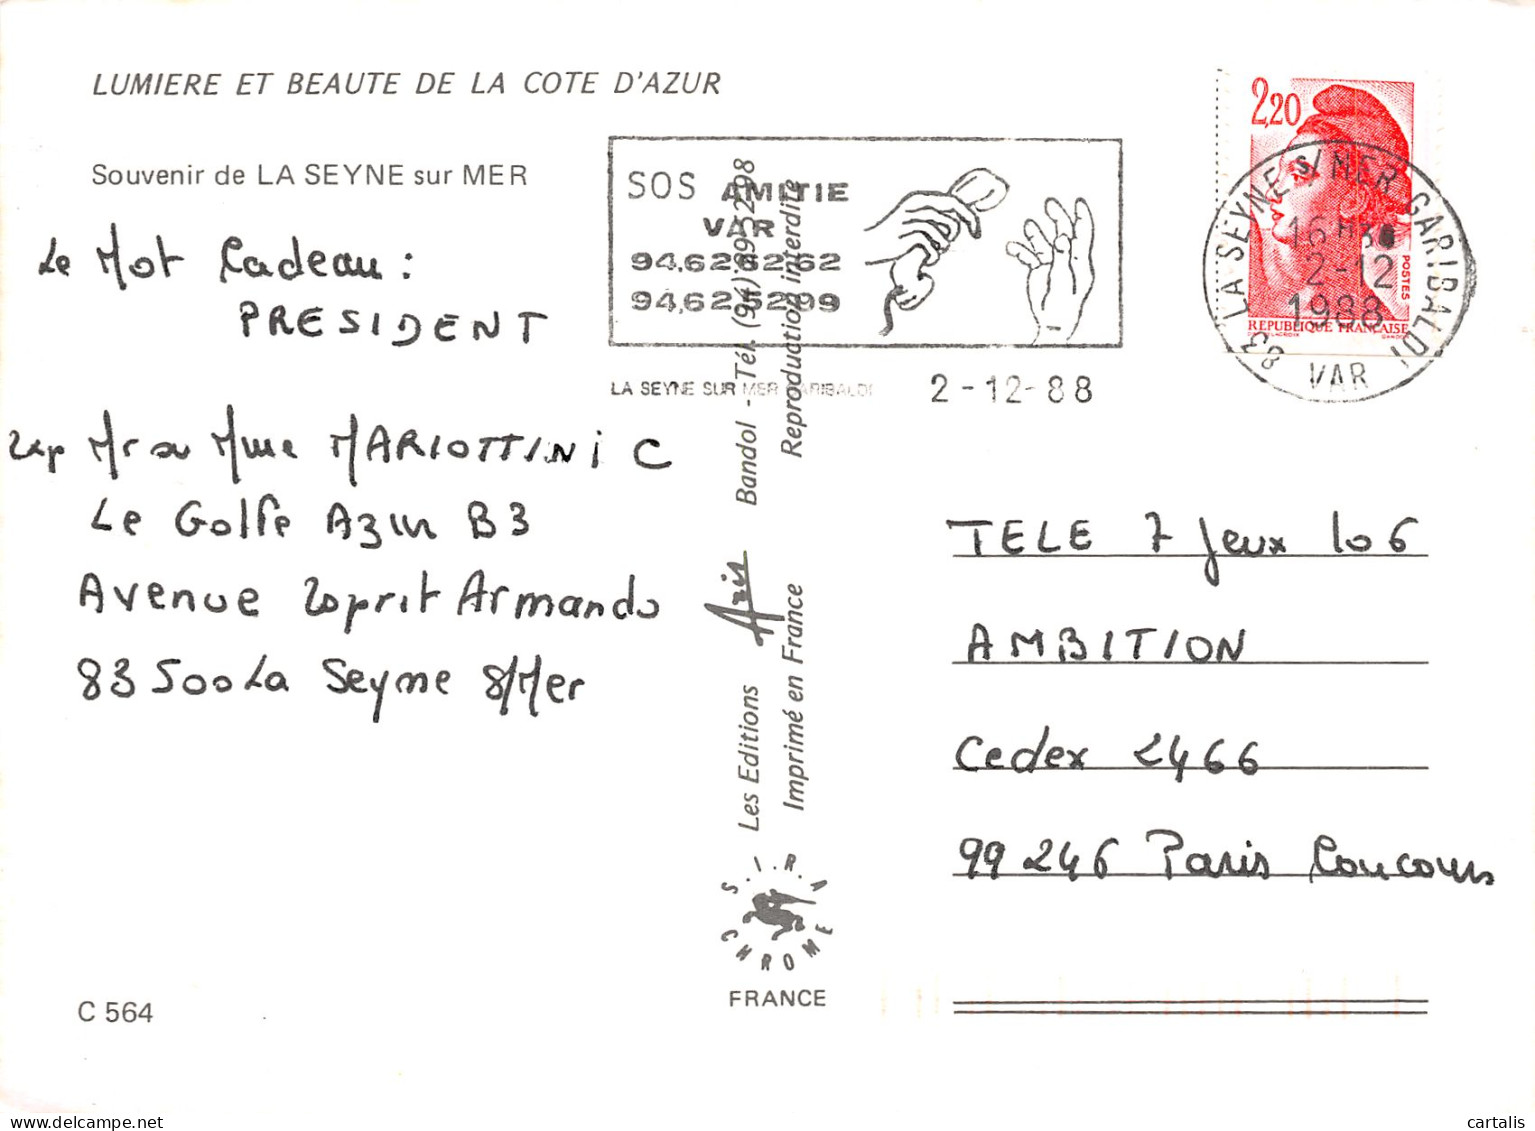 LUMIERE ET BEAUTE DE LA COTE D'AZUR
Souvenir de LA SEYNE sur MER
Le Mot Cadeau :
PRESIDENT
Exp Mr ou Mme MARIOTTINI C
Le Golfe Azur B3
Avenue Esprit Armando
83500 La Seyne S/Mer
C 564
SOS AMITIE
VAR
94.62 62 62
94,62 52 99
LA SEYNE SUR MER GARIBALDI
2-12-88
2,20
POSTES
REPUBLIQUE FRANÇAISE
83 LA SEYNE S/ MER GARIBALDI
2-12
1988
VAR
Les Editions Aris Bandol - Tél. (94)
Imprimé en France Reproduction interdite
S.I.R.A
CHROME
FRANCE
TELE 7 Jeux 106
AMBITION
Cedex 2466
99 246 Paris Concours
cartalis